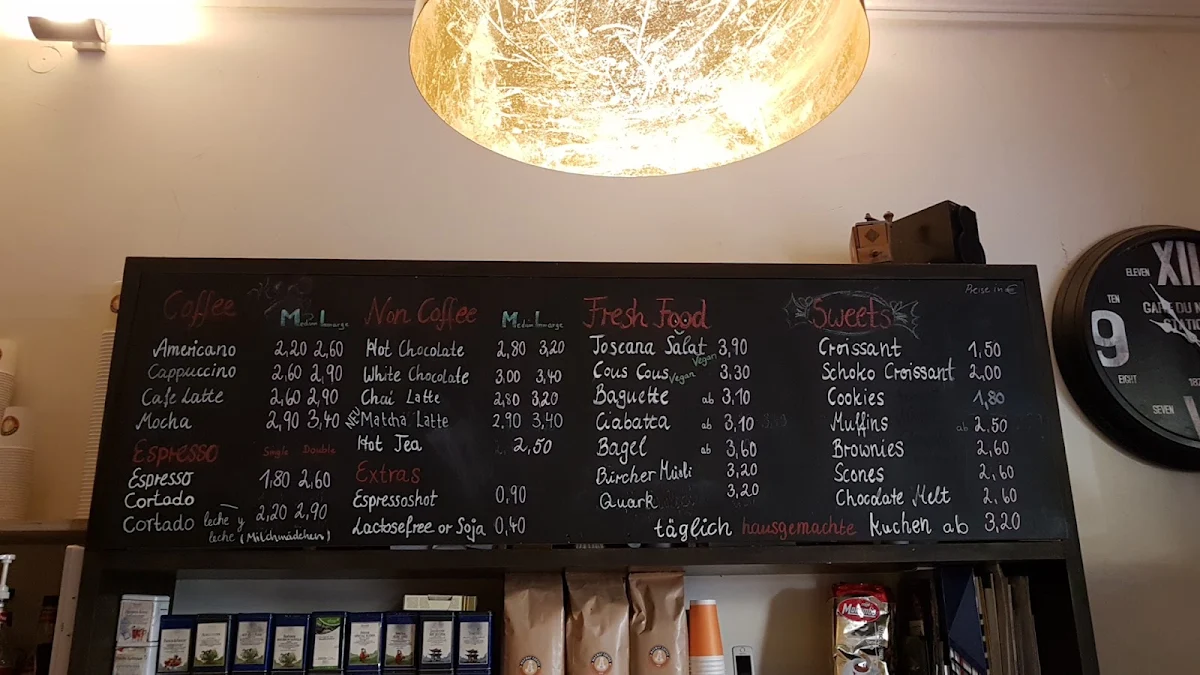 Preise in €
Coffee
Medium Large
Americano 2,20 2,60
Cappuccino 2,60 2,90
Cafe Latte 2,60 2,90
Mocha 2,90 3,40
Espresso Single Double
Espresso 1,80 2,60
Cortado
Cortado leche y leche (Milchmädchen) 2,20 2,90
Non Coffee
Medium Large
Hot Chocolate 2,80 3,20
White Chocolate 3,00 3,40
Chai Latte 2,80 3,20
NEU Matcha Latte 2,90 3,40
Hot Tea 2,50
Extras
Espressoshot 0,90
Lactosefree or Soja 0,40
Fresh Food
Toscana Salat Vegan 3,90
Cous Cous Vegan 3,30
Baguette ab 3,10
Ciabatta ab 3,10
Bagel ab 3,60
Bircher Müsli 3,20
Quark 3,20
Sweets
Croissant 1,50
Schoko Croissant 2,00
Cookies 1,80
Muffins ab 2.50
Brownies 2,60
Scones 2,60
Chocolate Melt 2,60
täglich hausgemachte Kuchen ab 3,20
ELEVEN XII
TEN
9
EIGHT
SEVEN